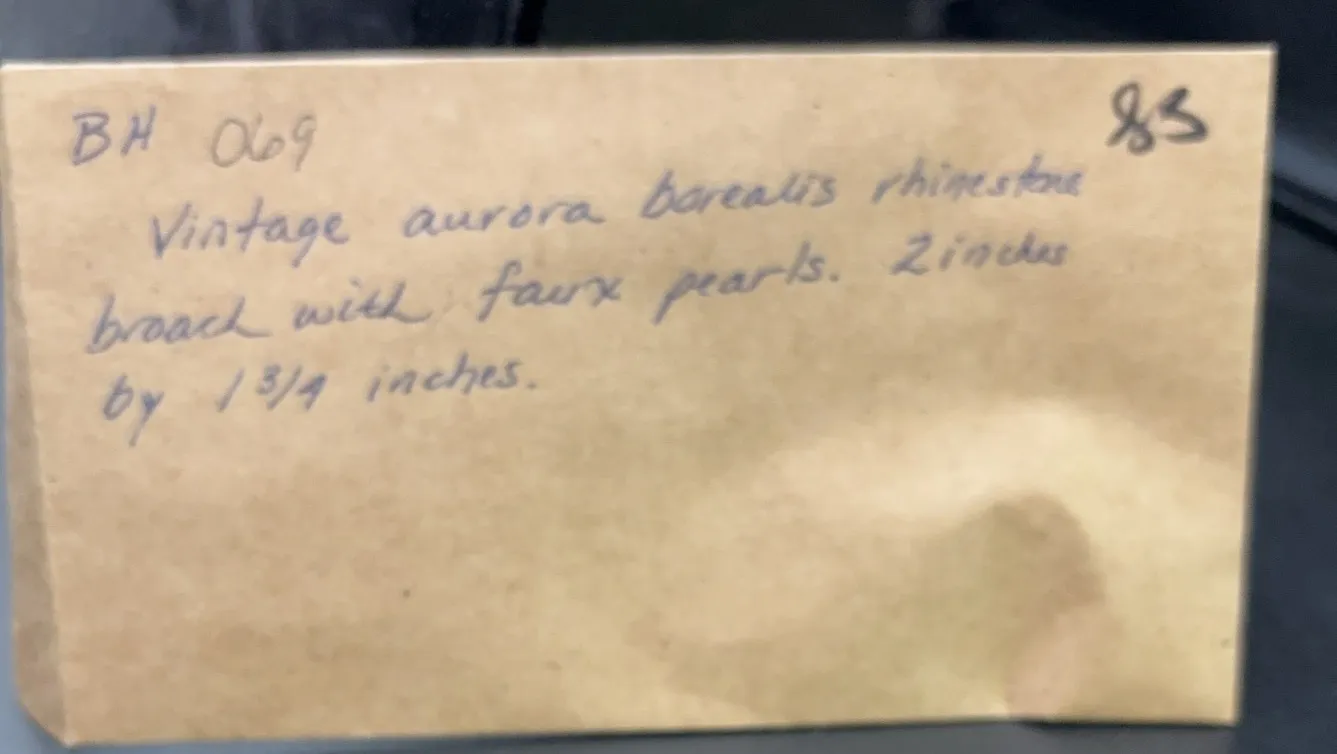 BH 069
85
Vintage aurora borealis rhinestone
broach with faux pearls. 2 inches
by 1 3/4 inches.